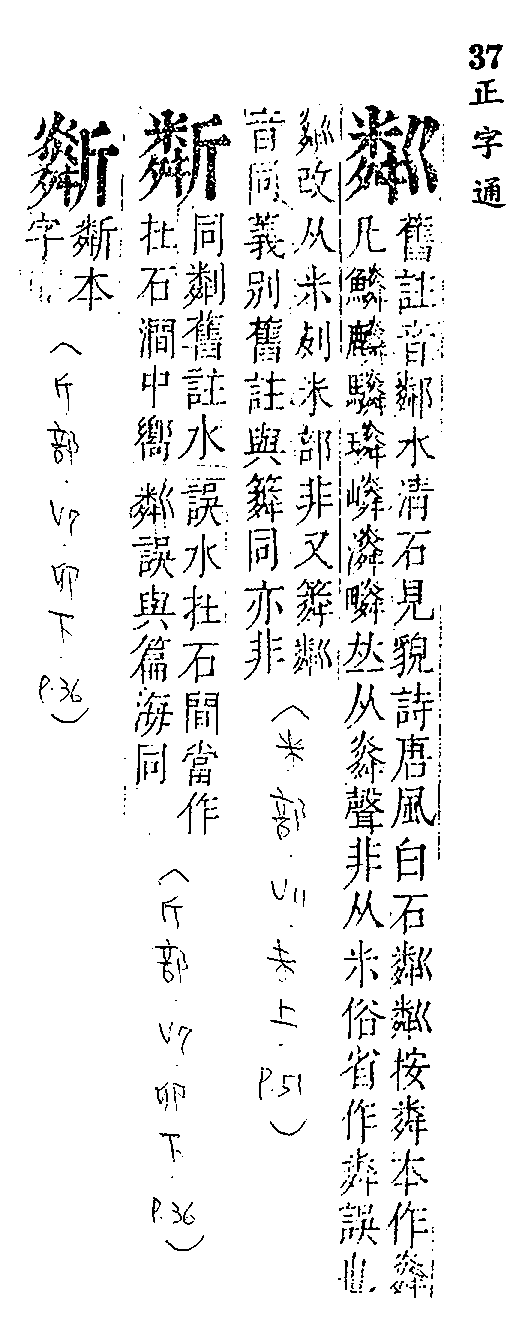 37 正字通
粼
舊註音鄰水清石見貌詩唐風白石粼粼按粦本作㷠
凡鱗麟驎璘嶙潾疄𠀤从㷠聲非从米俗省作粦誤也
㷠改从米列米部非又䉮粼
音同義別舊註與䉮同亦非
(米部.V11.未上.P.51)
斴
同粼舊註水誤水在石間當作
在石澗中嚮粼誤與篇海同
(斤部.V7.卯下.P.36)
斴本
字
(斤部.V7.卯下.P.36)